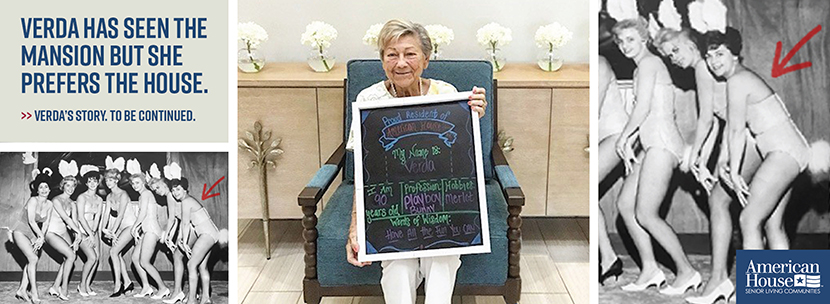 VERDA HAS SEEN THE
MANSION BUT SHE
PREFERS THE HOUSE.
>> VERDA'S STORY. TO BE CONTINUED.
Proud Residents of
American House
My Name is:
Verda
I Am
90
years old
Profession
playboy
Bunny
Hobbies
Merlot
Words of Wisdom:
Have All the Fun You Can!
American
House
SENIOR LIVING COMMUNITIES